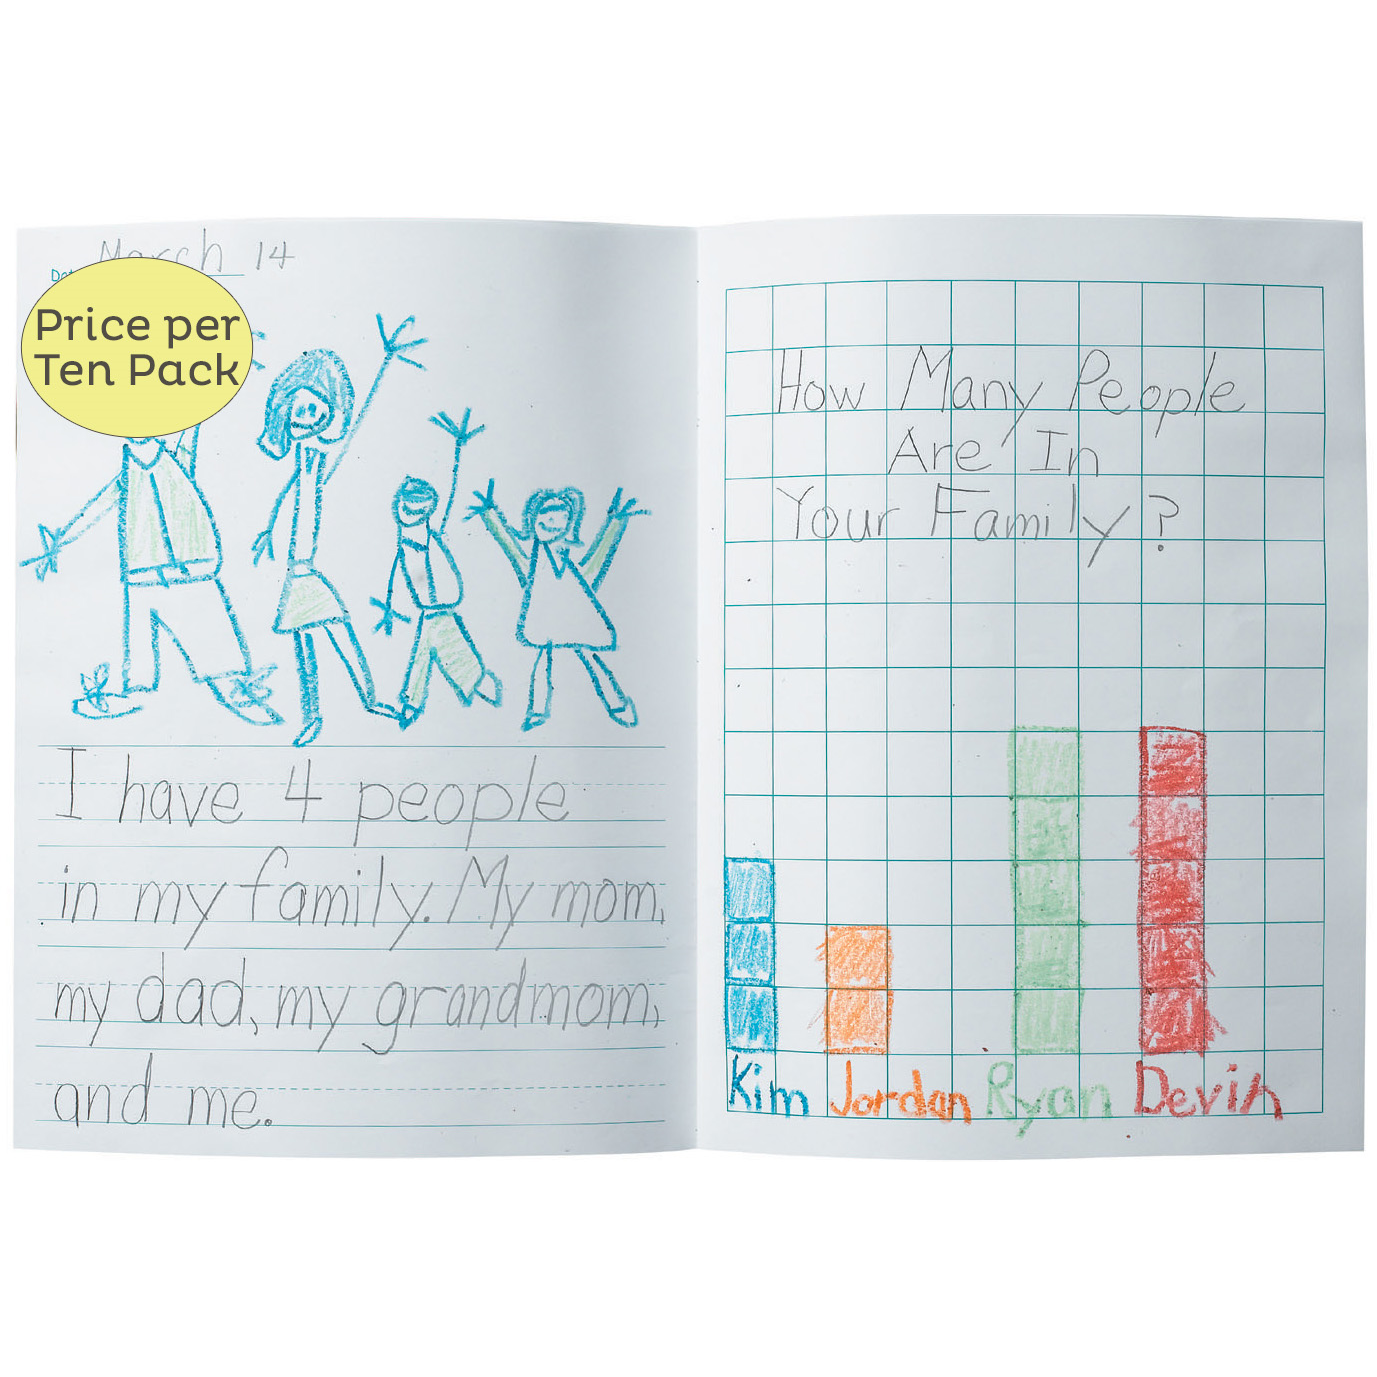 March 14
Price per
Ten Pack
I have 4 people
in my family. My mom,
my dad, my grandmom,
and me.
How Many People
Are In
Your Family?
Kim Jordan Ryan Devin